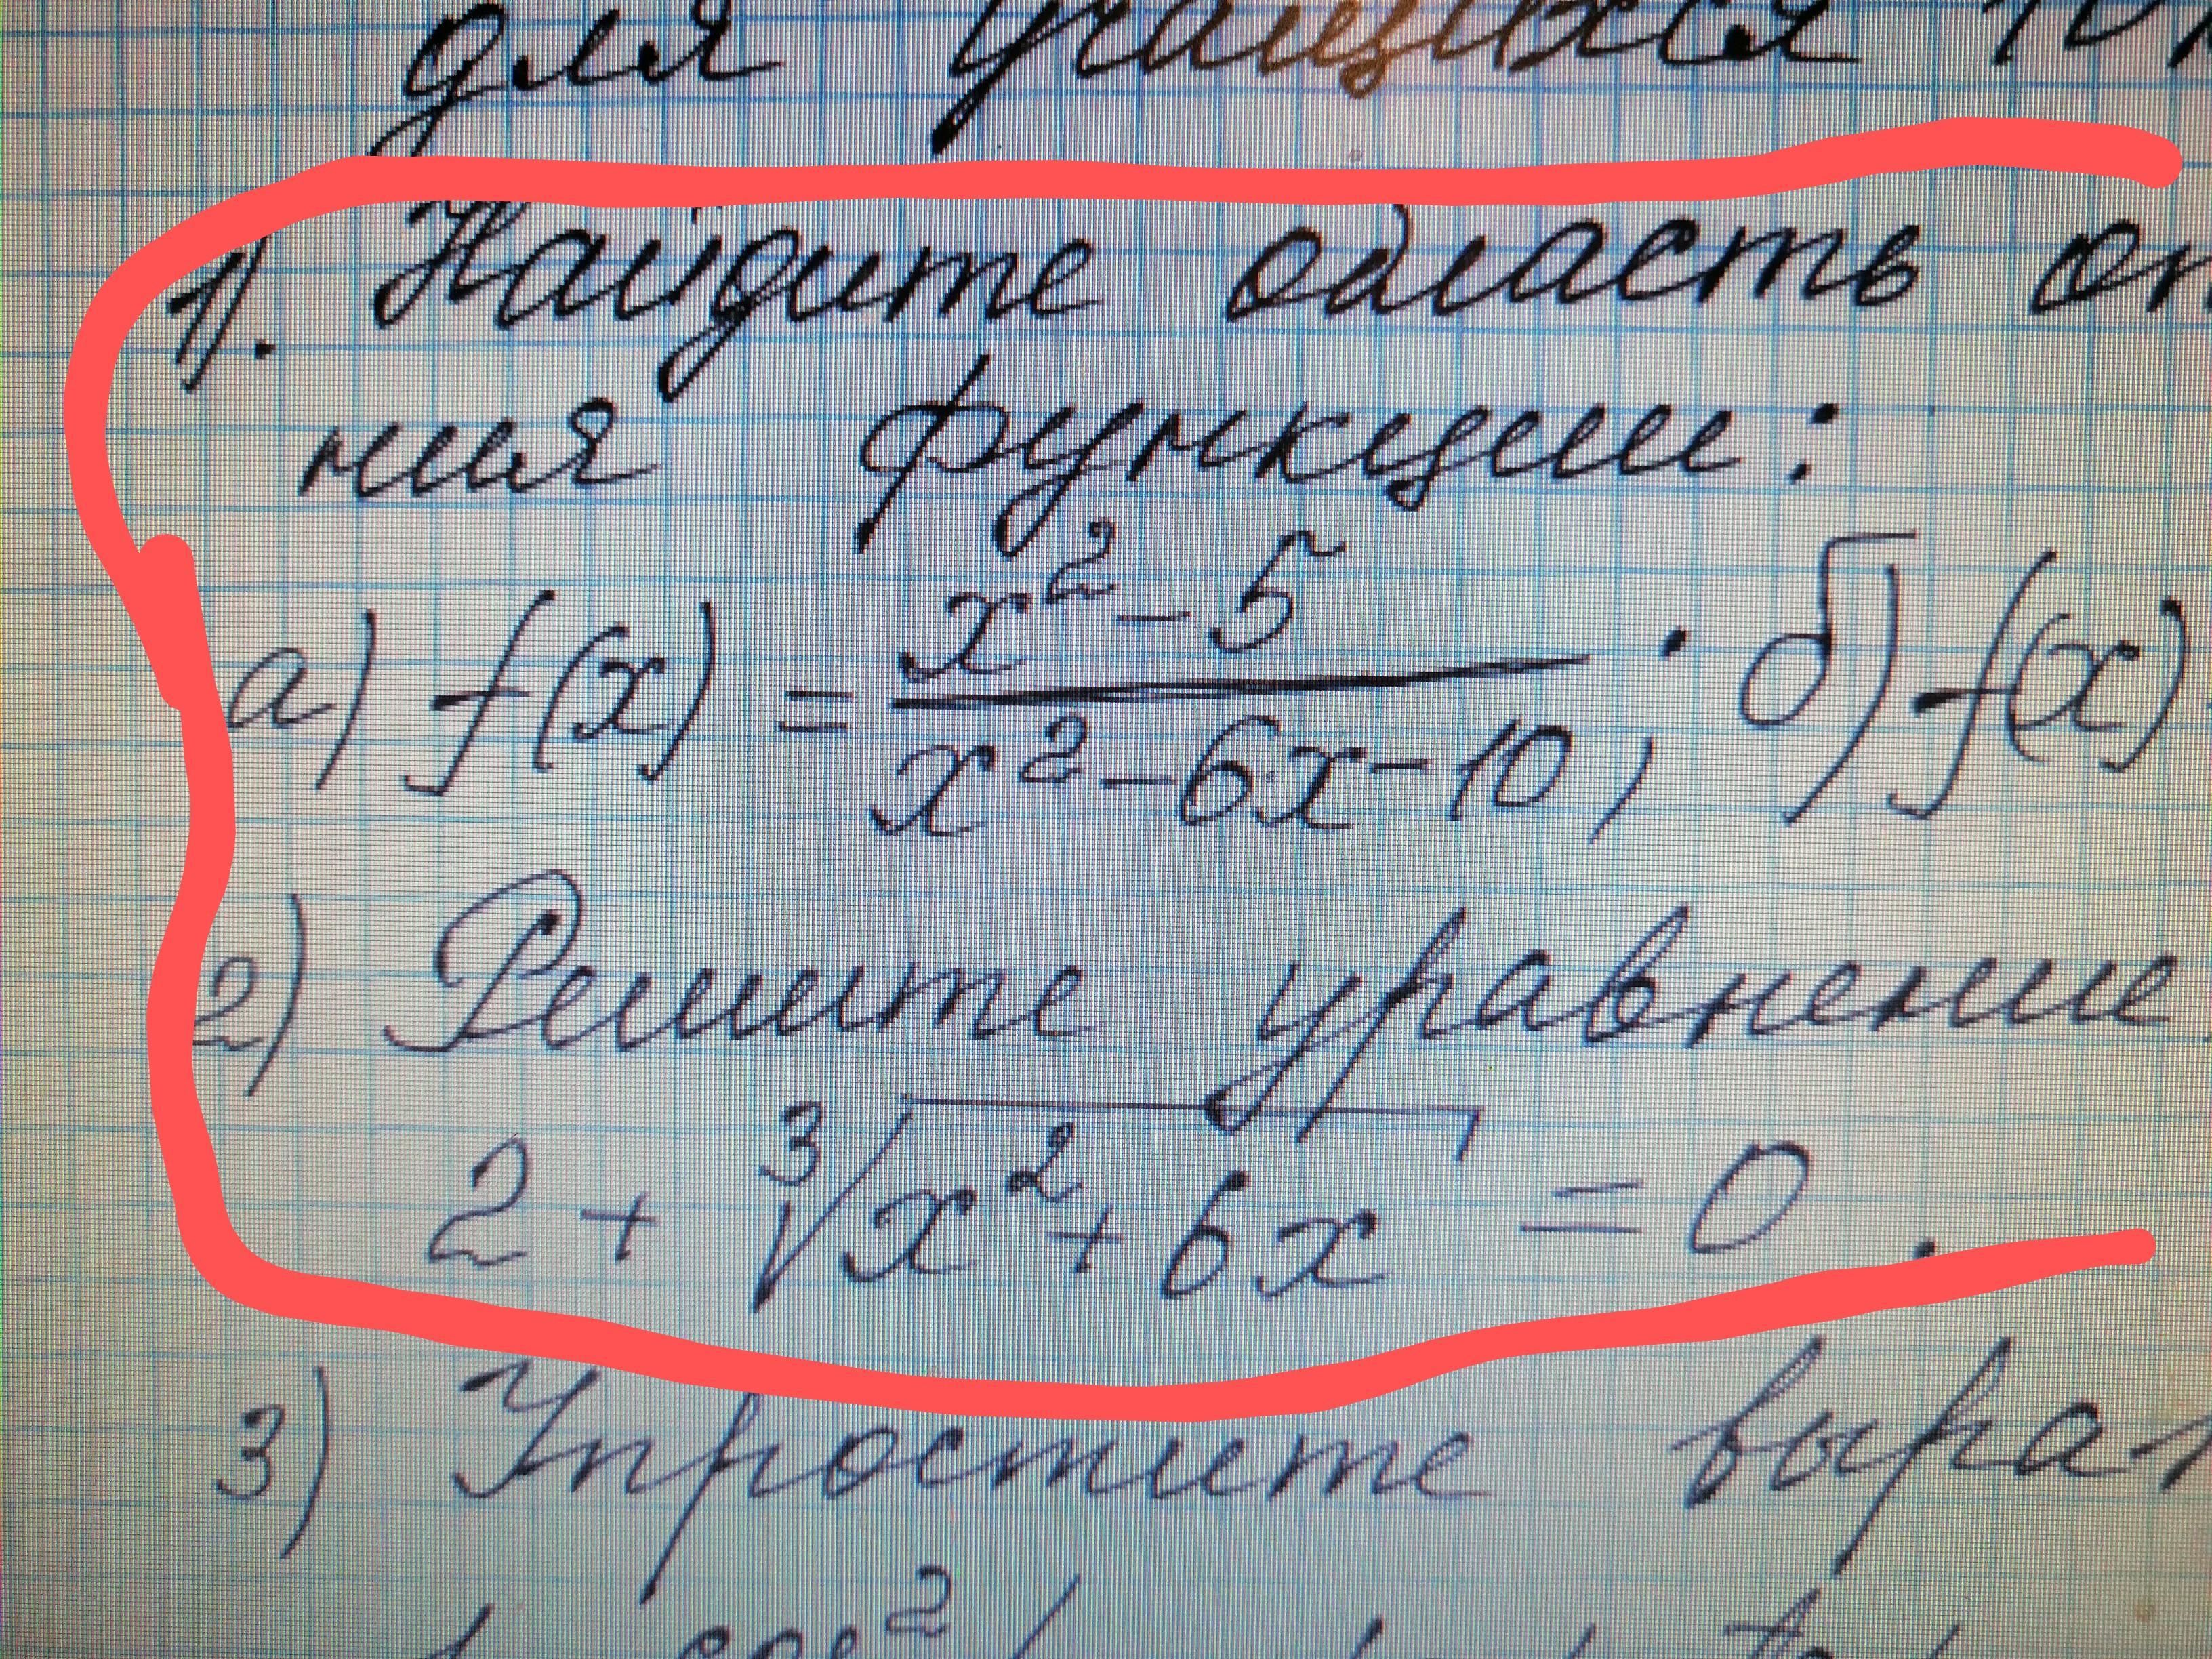 для учащихся 10
1). Найдите область оп
ния функции:
а) f(x) = \frac{x^2 - 5}{x^2 - 6x - 10}; б) f(x)
2) Решите уравнение
2 + \sqrt[3]{x^2 + 6x} = 0.
3) Упростите выра